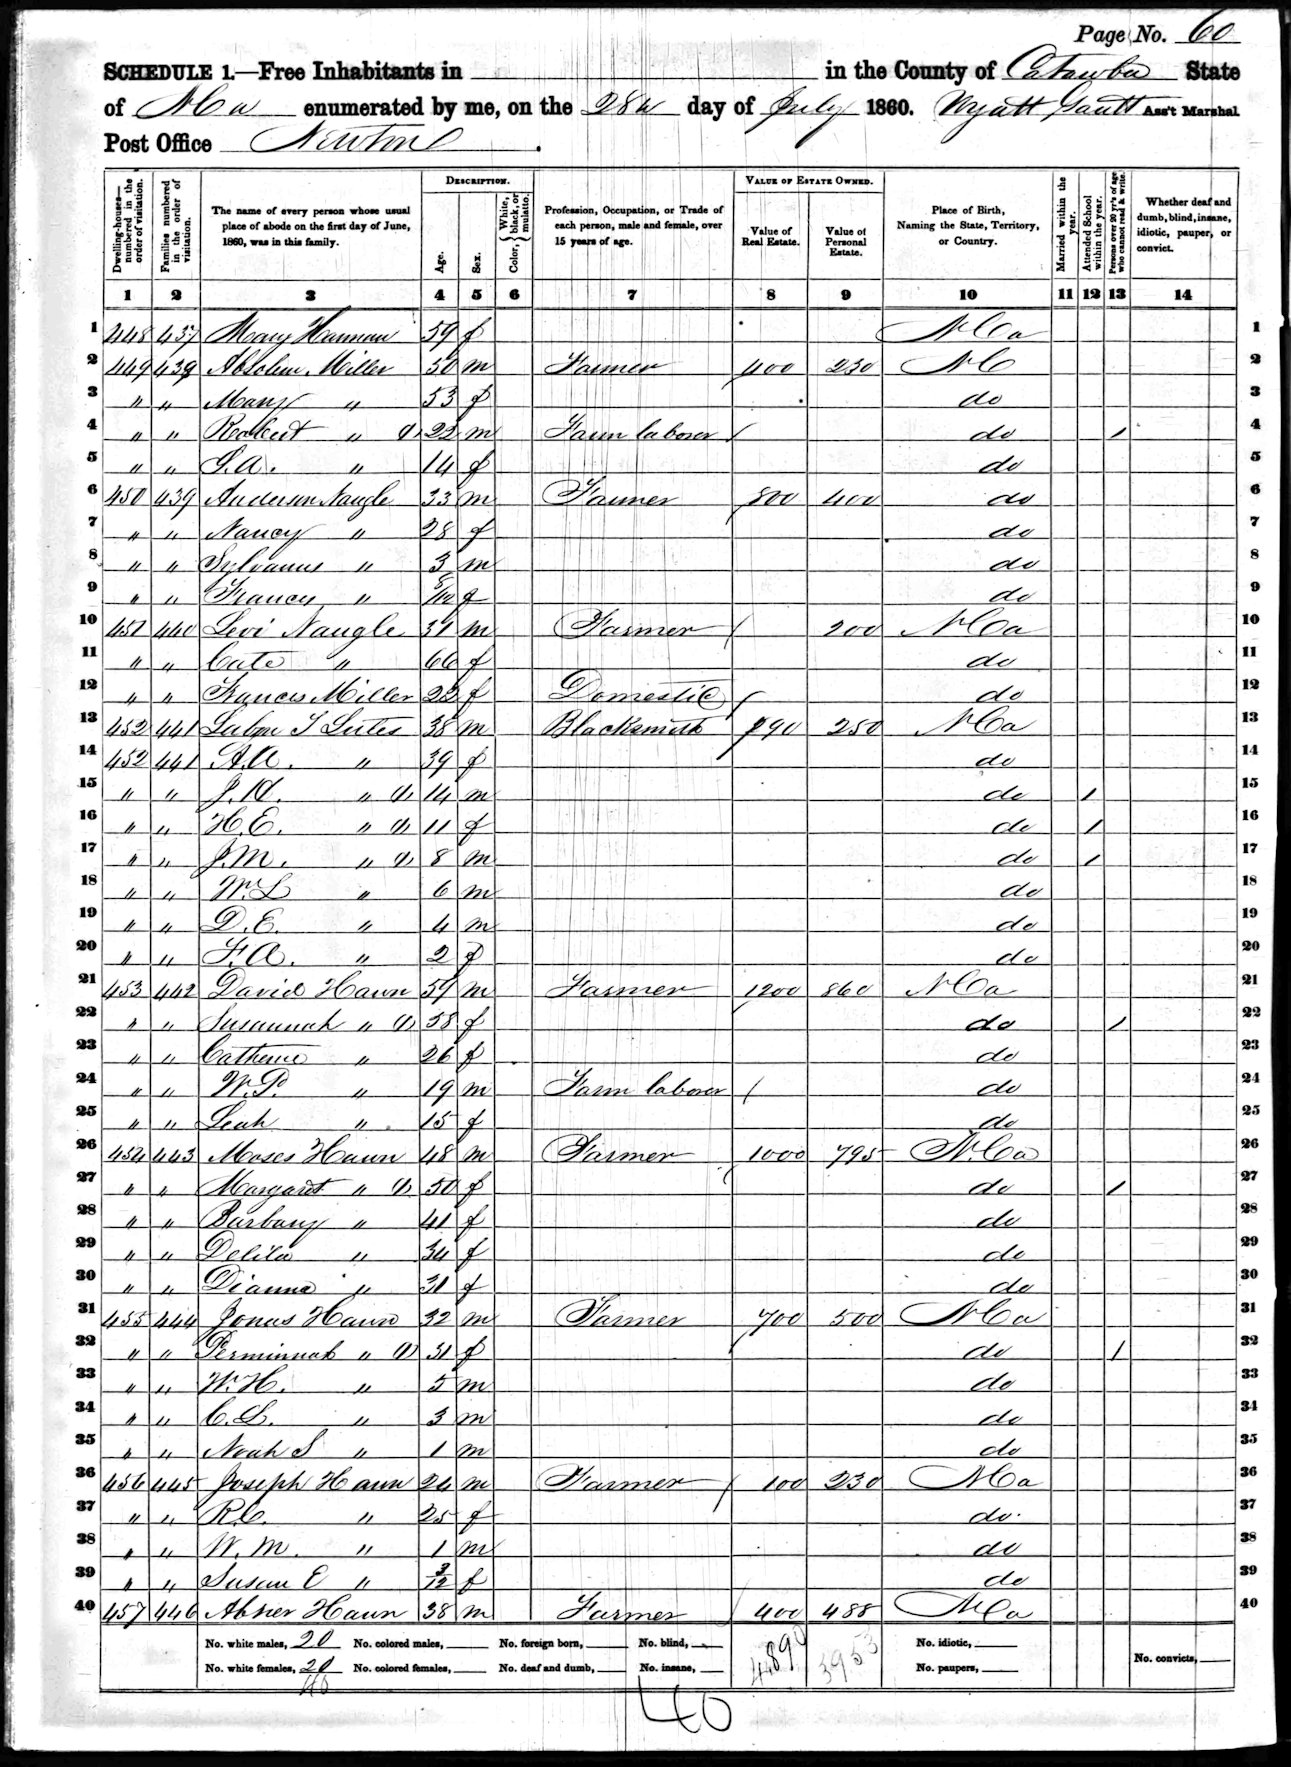 Page No. 60
SCHEDULE 1.—Free Inhabitants in in the County of Catawba State
of N Ca enumerated by me, on the 28th day of July 1860. Wyatt Gantt Ass't Marshal
Post Office Newton
Dwelling-houses—numbered in the order of visitation.
Families numbered in the order of visitation.
The name of every person whose usual place of abode on the first day of June, 1860, was in this family.
DESCRIPTION.
Age.
Sex.
Color, { White, black, or mulatto.
Profession, Occupation, or Trade of each person, male and female, over 15 years of age.
VALUE OF ESTATE OWNED.
Value of Real Estate.
Value of Personal Estate.
Place of Birth, Naming the State, Territory, or Country.
Married within the year.
Attended School within the year.
Persons over 20 y'rs of age who cannot read & write.
Whether deaf and dumb, blind, insane, idiotic, pauper, or convict.
1 2 3 4 5 6 7 8 9 10 11 12 13 14
1 448 437 Mary Harman 59 f N Ca 1
2 449 439 Absolem Miller 50 m Farmer 400 230 N C 2
3 " " Mary " 53 f do 3
4 " " Robert " (1) 22 m Farm laborer / do / 4
5 " " S.A. " 14 f do 5
6 450 439 Anderson Naugle 33 m Farmer 800 400 do 6
7 " " Nancy " 28 f do 7
8 " " Sylvanus " 3 m do 8
9 " " Francy " 8/12 f do 9
10 451 440 Levi Naugle 31 m Farmer / 200 N Ca 10
11 " " Cate " 66 f do 11
12 " " Frances Miller 22 f Domestic / do 12
13 452 441 S Sites 38 m Blacksmith 290 250 N Ca 13
14 452 441 A.A. " 39 f do 14
15 " " J.H. " (1) 14 m do / 15
16 " " H.E. " (1) 11 f do / 16
17 " " J.M. " (1) 8 m do / 17
18 " " W.L " 6 m do 18
19 " " D.E. " 4 m do 19
20 " " F.A. " 2 f do 20
21 453 442 David Hawn 59 m Farmer 1200 860 N Ca 21
22 " " Susannah " (1) 58 f do / 22
23 " " Catherine " 26 f do 23
24 " " W.P. " 19 m Farm laborer / do 24
25 " " Leah " 15 f do 25
26 454 443 Moses Hawn 48 m Farmer 1000 795 N. Ca 26
27 " " Margaret " (1) 50 f do / 27
28 " " Barbary " 41 f do 28
29 " " Delila " 34 f do 29
30 " " Dianna " 31 f do 30
31 455 444 Jonas Hawn 32 m Farmer 700 500 N Ca 31
32 " " Perminnah " (1) 31 f do / 32
33 " " W.H. " 5 m do 33
34 " " C.L. " 3 m do 34
35 " " Noah S " 1 m do 35
36 456 445 Joseph Hawn 24 m Farmer / 100 230 N Ca 36
37 " " R.C. " 25 f do 37
38 " " W.M. " 1 m do 38
39 " " Susan E " 3/12 f do 39
40 457 446 Abner Hawn 38 m Farmer 400 488 N Ca 40
No. white males, 20 No. colored males, No. foreign born, No. blind, 4890 3953 No. idiotic,
No. white females, 20 No. colored females, No. deaf and dumb, No. insane, No. paupers, No. convicts,
40
40